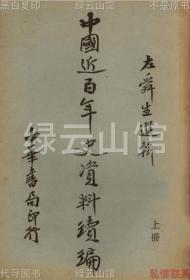 黑白复印
绿云山馆
左舜生選輯
中國近百年史資料續編
上冊
中華書局印行
绿云山馆
绿云山馆
代寻图书
私信联系